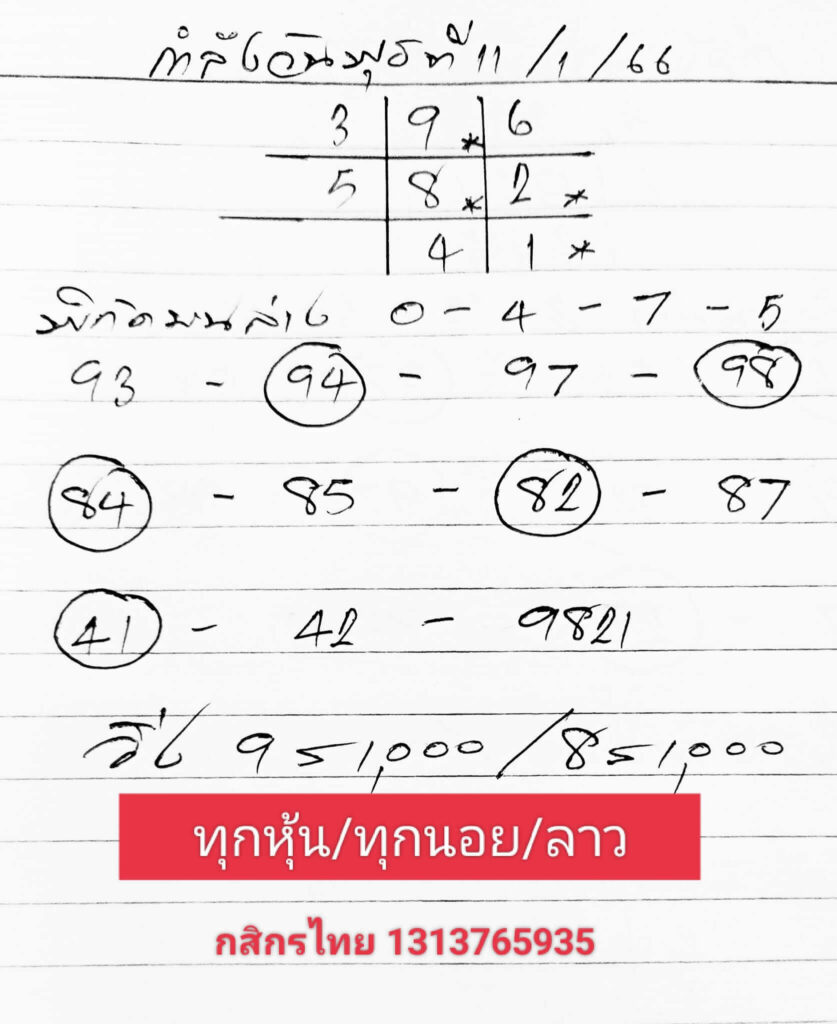 กำลังวันพุธที่ 11/1/66
3 9* 6
5 8* 2*
4 1*
พิกัดบนล่าง 0 - 4 - 7 - 5
93 - 94 - 97 - 98
84 - 85 - 82 - 87
41 - 42 - 9821
วิ่ง 9 ร 1,000/8 ร 1,000
ทุกหุ้น/ทุกนอย/ลาว
กสิกรไทย 1313765935